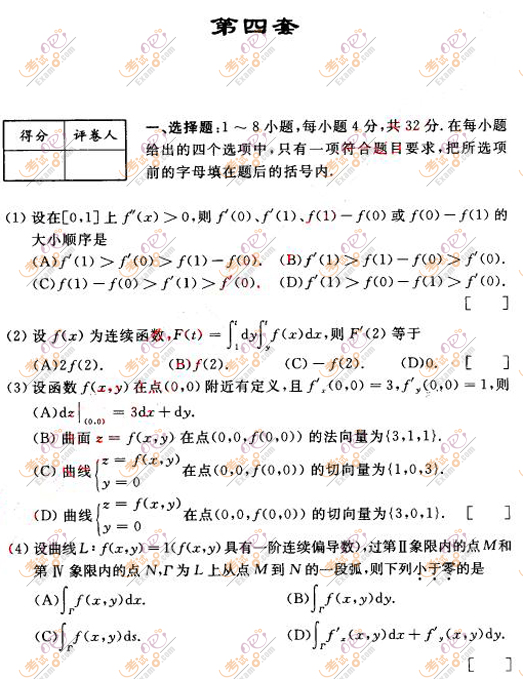 第四套
得分 评卷人
一、选择题:1～8小题,每小题4分,共32分.在每小题
给出的四个选项中,只有一项符合题目要求,把所选项
前的字母填在题后的括号内.
(1) 设在[0,1]上 f″(x)>0,则 f′(0)、f′(1)、f(1)－f(0) 或 f(0)－f(1) 的
大小顺序是
(A) f′(1)>f′(0)>f(1)－f(0). (B) f′(1)>f(1)－f(0)>f′(0).
(C) f(1)－f(0)>f′(1)>f′(0). (D) f′(1)>f(0)－f(1)>f′(0).
[ ]
(2) 设 f(x) 为连续函数,F(t)=∫₁ᵗdy∫ᵧᵗf(x)dx,则 F′(2) 等于
(A)2f(2). (B)f(2). (C)－f(2). (D)0. [ ]
(3) 设函数 f(x,y) 在点(0,0) 附近有定义,且 f′ₓ(0,0)=3,f′ᵧ(0,0)=1,则
(A)dz|(0,0)=3dx+dy.
(B) 曲面 z=f(x,y) 在点(0,0,f(0,0)) 的法向量为{3,1,1}.
(C) 曲线{z=f(x,y) y=0 在点(0,0,f(0,0)) 的切向量为{1,0,3}.
(D) 曲线{z=f(x,y) y=0 在点(0,0,f(0,0)) 的切向量为{3,0,1}. [ ]
(4) 设曲线L:f(x,y)=1(f(x,y)具有一阶连续偏导数),过第Ⅱ象限内的点M和
第Ⅳ象限内的点N,Γ为L上从点M到N的一段弧,则下列小于零的是
(A)∫Γ f(x,y)dx. (B)∫Γ f(x,y)dy.
(C)∫Γ f(x,y)ds. (D)∫Γ f′ₓ(x,y)dx+f′ᵧ(x,y)dy.
[ ]